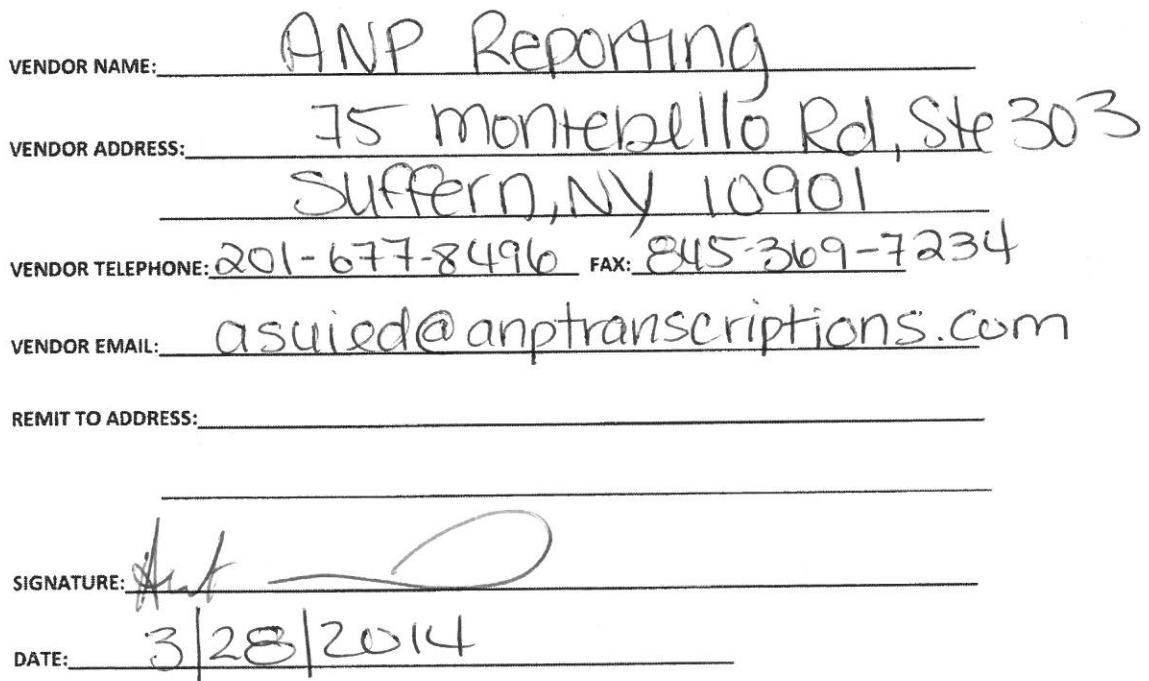 VENDOR NAME: ANP Reporting
VENDOR ADDRESS: 75 Montebello Rd, Ste 303
Suffern, NY 10901
VENDOR TELEPHONE: 201-677-8496 FAX: 845-369-7234
VENDOR EMAIL: asuied@anptranscriptions.com
REMIT TO ADDRESS:
SIGNATURE:
DATE: 3|28|2014